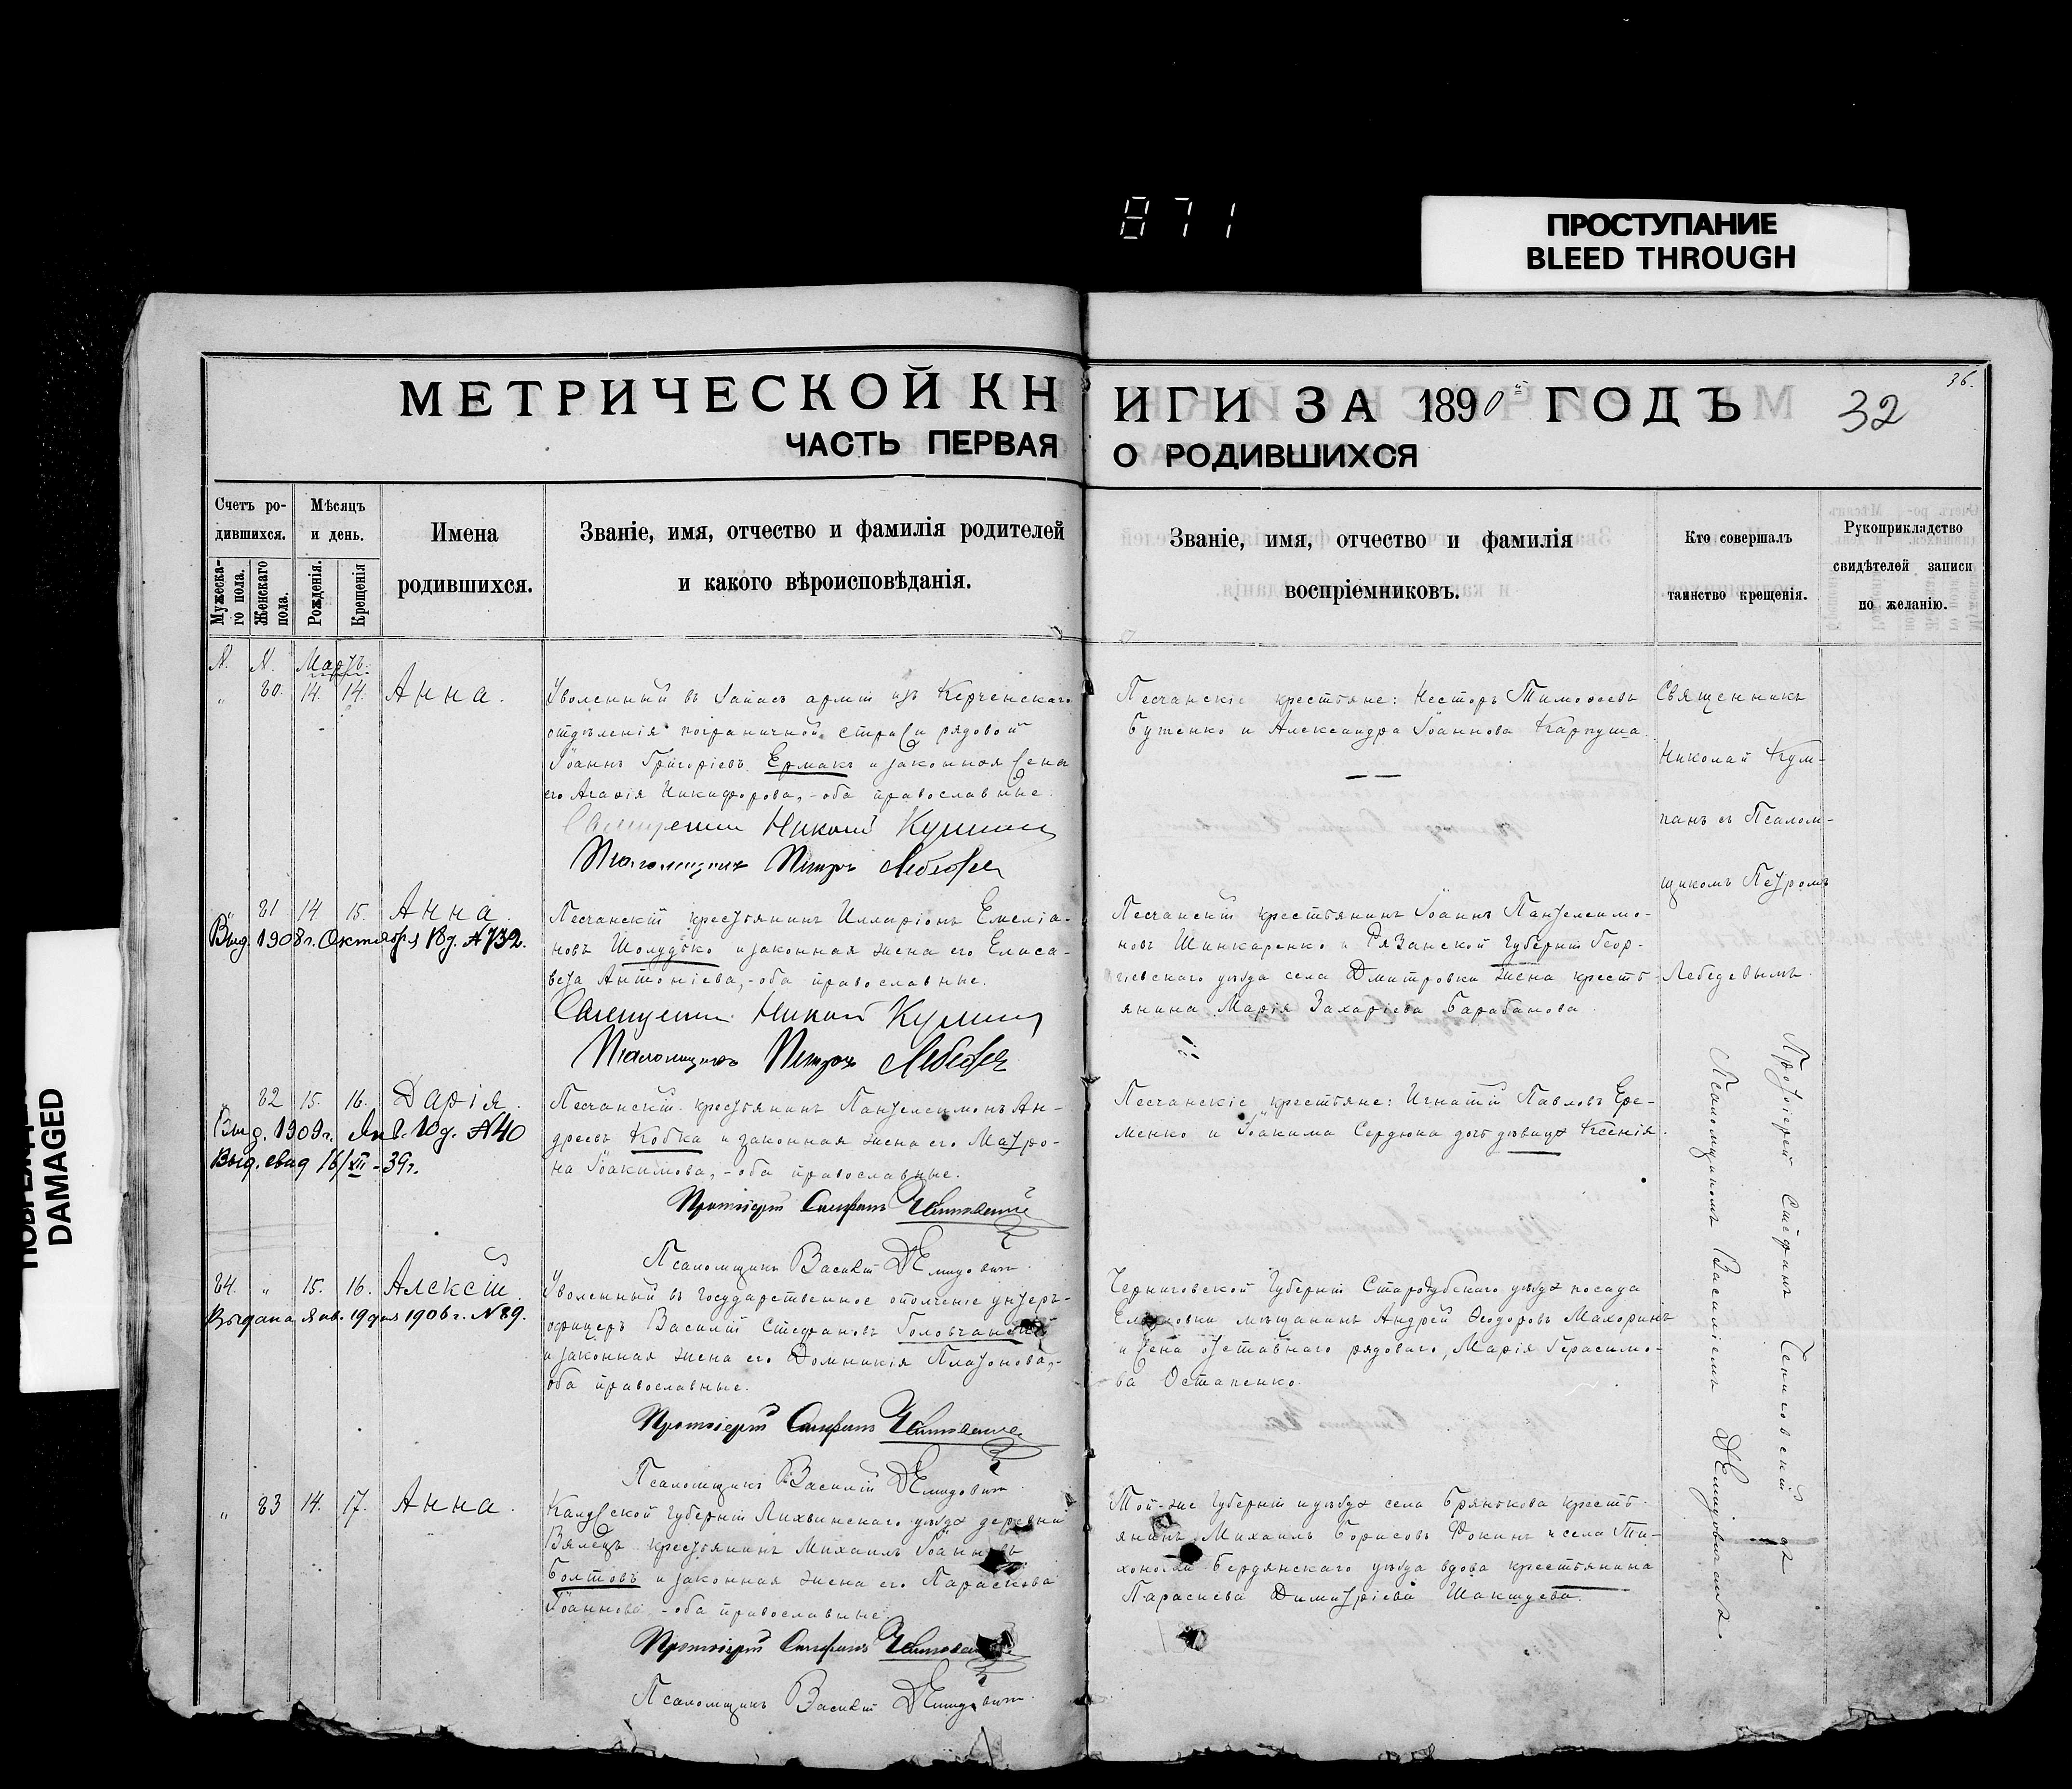 871
ПРОСТУПАНИЕ
BLEED THROUGH
DAMAGED
МЕТРИЧЕСКОЙ КНИГИ ЗА 1890й ГОДЪ
32
36.
ЧАСТЬ ПЕРВАЯ О РОДИВШИХСЯ
Счетъ ро-
дившихся.
Мужеска-
го пола.
Женскаго
пола.
Мѣсяцъ
и день.
Рожденія.
Крещенія
Имена
родившихся.
Званіе, имя, отчество и фамилія родителей
и какого вѣроисповѣданія.
Званіе, имя, отчество и фамилія
воспріемниковъ.
Кто совершалъ
таинство крещенія.
Рукоприкладство
свидѣтелей записи
по желанію.
N. N. Мартъ.
" 80. 14. 14. Анна.
Уволенный въ запасъ арміи изъ Керченскаго
отдѣленія пограничной стражи рядовой
Іоаннъ Григоріевъ Ермакъ и законная жена
его Агафія Никифорова, - оба православные.
Священникъ Николай
Псаломщикъ Петръ Лебедевъ
Песчанскіе крестьяне: Несторъ Тимофеевъ
Бутенко и Александра Іоаннова Карпуша.
Священникъ
Николай Кум-
панъ съ Псалом-
щикомъ Петромъ
Лебедевымъ.
" 81 14 15. Анна.
Выд. 1908 г. Октября 18 д. № 732.
Песчанскій крестьянинъ Илларіонъ Емеліа-
новъ Шолудько и законная жена его Елиса-
вета Антоніева, - оба православные.
Священникъ Николай
Псаломщикъ Петръ Лебедевъ
Песчанскій крестьянинъ Іоаннъ Пантелеимо-
новъ Шинкаренко и Рязанской губерніи Геор-
гіевскаго уѣзда села Дмитровки жена кресть-
янина Марія Захаріева Барабанова.
" 82 15. 16. Дарія.
Выд. 1909 г. Янв. 10 д. № 40
Выд. свид 16/XII - 39 г.
Песчанскій крестьянинъ Пантелеимонъ Ан-
дреевъ Кобка и законная жена его Матро-
на Іоакимова, - оба православные.
Протоіерей Стефанъ
Псаломщикъ Василій Демидовичъ
Песчанскіе крестьяне: Игнатій Павловъ Ере-
менко и Іоакима Сердюка дочь дѣвица Ксенія.
Протоіерей Стефанъ
Псаломщикомъ Василіемъ
84. " 15. 16. Алексій.
Выдана Янв. 19 дня 1906 г. № 89.
Уволенный въ государственное ополченіе унтеръ-
офицеръ Василій Стефановъ Головчанскій
и законная жена его Домникія Платонова, -
оба православные.
Протоіерей Стефанъ
Псаломщикъ Василій Демидовичъ
Черниговской губерніи Стародубскаго уѣзда посада
мѣщанинъ Андрей Феодоровъ Махоринъ
и жена отставнаго рядоваго, Марія Герасимо-
ва Остапенко.
" 83 14. 17. Анна.
Калужской губерніи Лихвинскаго уѣзда деревни
Вялецъ крестьянинъ Михаилъ Іоанновъ
Болтовъ и законная жена его Параскова
Іоаннова - оба православные.
Протоіерей Стефанъ
Псаломщикъ Василій Демидовичъ
Той-же губерніи и уѣзда села кресть-
янинъ Михаилъ Борисовъ Фокинъ и села Ти-
Бердянскаго уѣзда вдова крестьянина
Параскева Димитріева